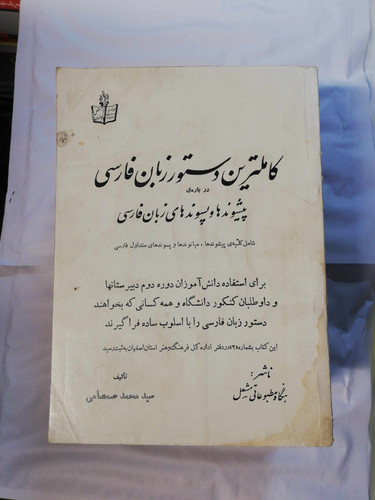 کاملترین دستور زبان فارسی
درباره‌ی
پیشوندها و پسوندهای زبان فارسی
شامل کلیه‌ی پیشوندها، میانوندها و پسوندهای متداول فارسی
برای استفاده دانش‌آموزان دوره دوم دبیرستانها
و داوطلبان کنکور دانشگاه و همه کسانی که بخواهند
دستور زبان فارسی را با اسلوب ساده فراگیرند
این کتاب بشماره ۵۲۵ در دفتر اداره کل فرهنگ و هنر استان اصفهان به ثبت رسید
ناشر:
بنگاه مطبوعاتی مشعل
تألیف
سید محمد صمصامی